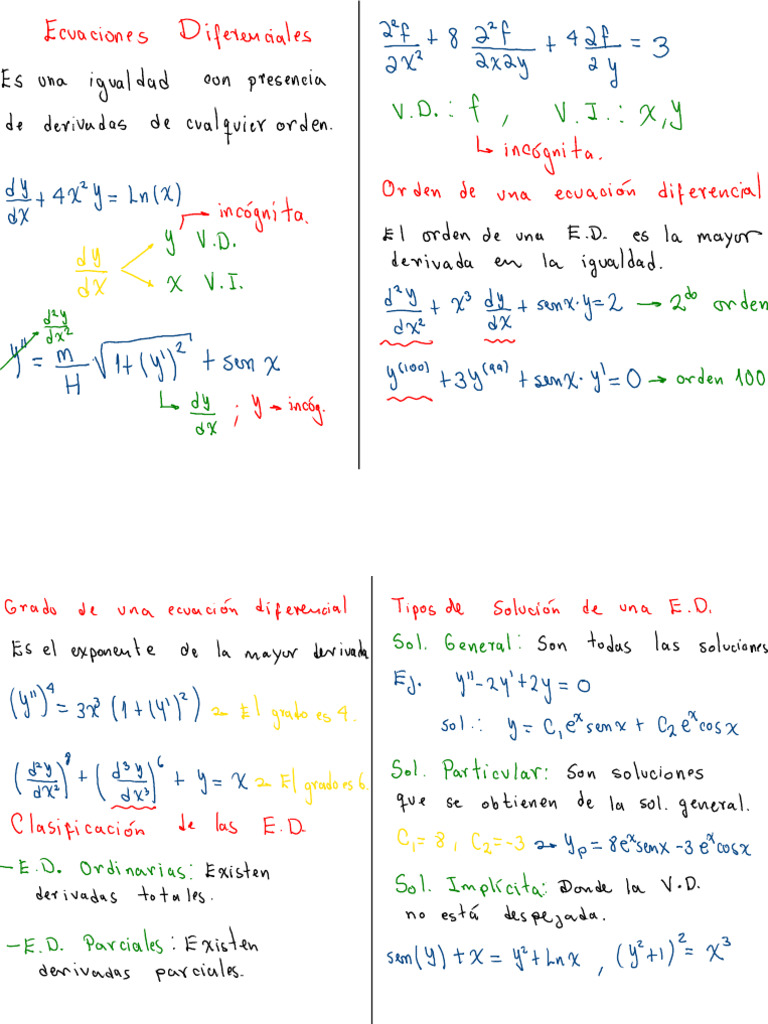 Ecuaciones Diferenciales
Es una igualdad con presencia
de derivadas de cualquier orden.
dy/dx + 4x²y = Ln(x)
dy/dx
y V.D. → incógnita.
x V.I.
d²y/dx²
y'' = m/H √(1+(y')²) + sen x
↳ dy/dx ; y → incóg.
∂²f/∂x² + 8 ∂²f/∂x∂y + 4 ∂f/∂y = 3
V.D.: f , V.I.: x,y
↳ incógnita.
Orden de una ecuación diferencial
El orden de una E.D. es la mayor
derivada en la igualdad.
d²y/dx² + x³ dy/dx + senx·y = 2 → 2do orden
y^(100) + 3y^(99) + senx·y' = 0 → orden 100
Grado de una ecuación diferencial
Es el exponente de la mayor derivada
(y'')⁴ = 3x³ (1+(y')²) → El grado es 4.
(d²y/dx²)⁸ + (d³y/dx³)⁶ + y = x → El grado es 6.
Clasificación de las E.D
- E.D. Ordinarias: Existen
derivadas totales.
- E.D. Parciales: Existen
derivadas parciales.
Tipos de solución de una E.D.
Sol. General: Son todas las soluciones
Ej. y''-2y'+2y = 0
sol.: y = C₁eˣsenx + C₂eˣcosx
Sol. Particular: Son soluciones
que se obtienen de la sol. general.
C₁=8, C₂=-3 → yₚ = 8eˣsenx -3eˣcosx
Sol. Implícita: Donde la V.D.
no está despejada.
sen(y) + x = y² + Ln x , (y²+1)² = x³